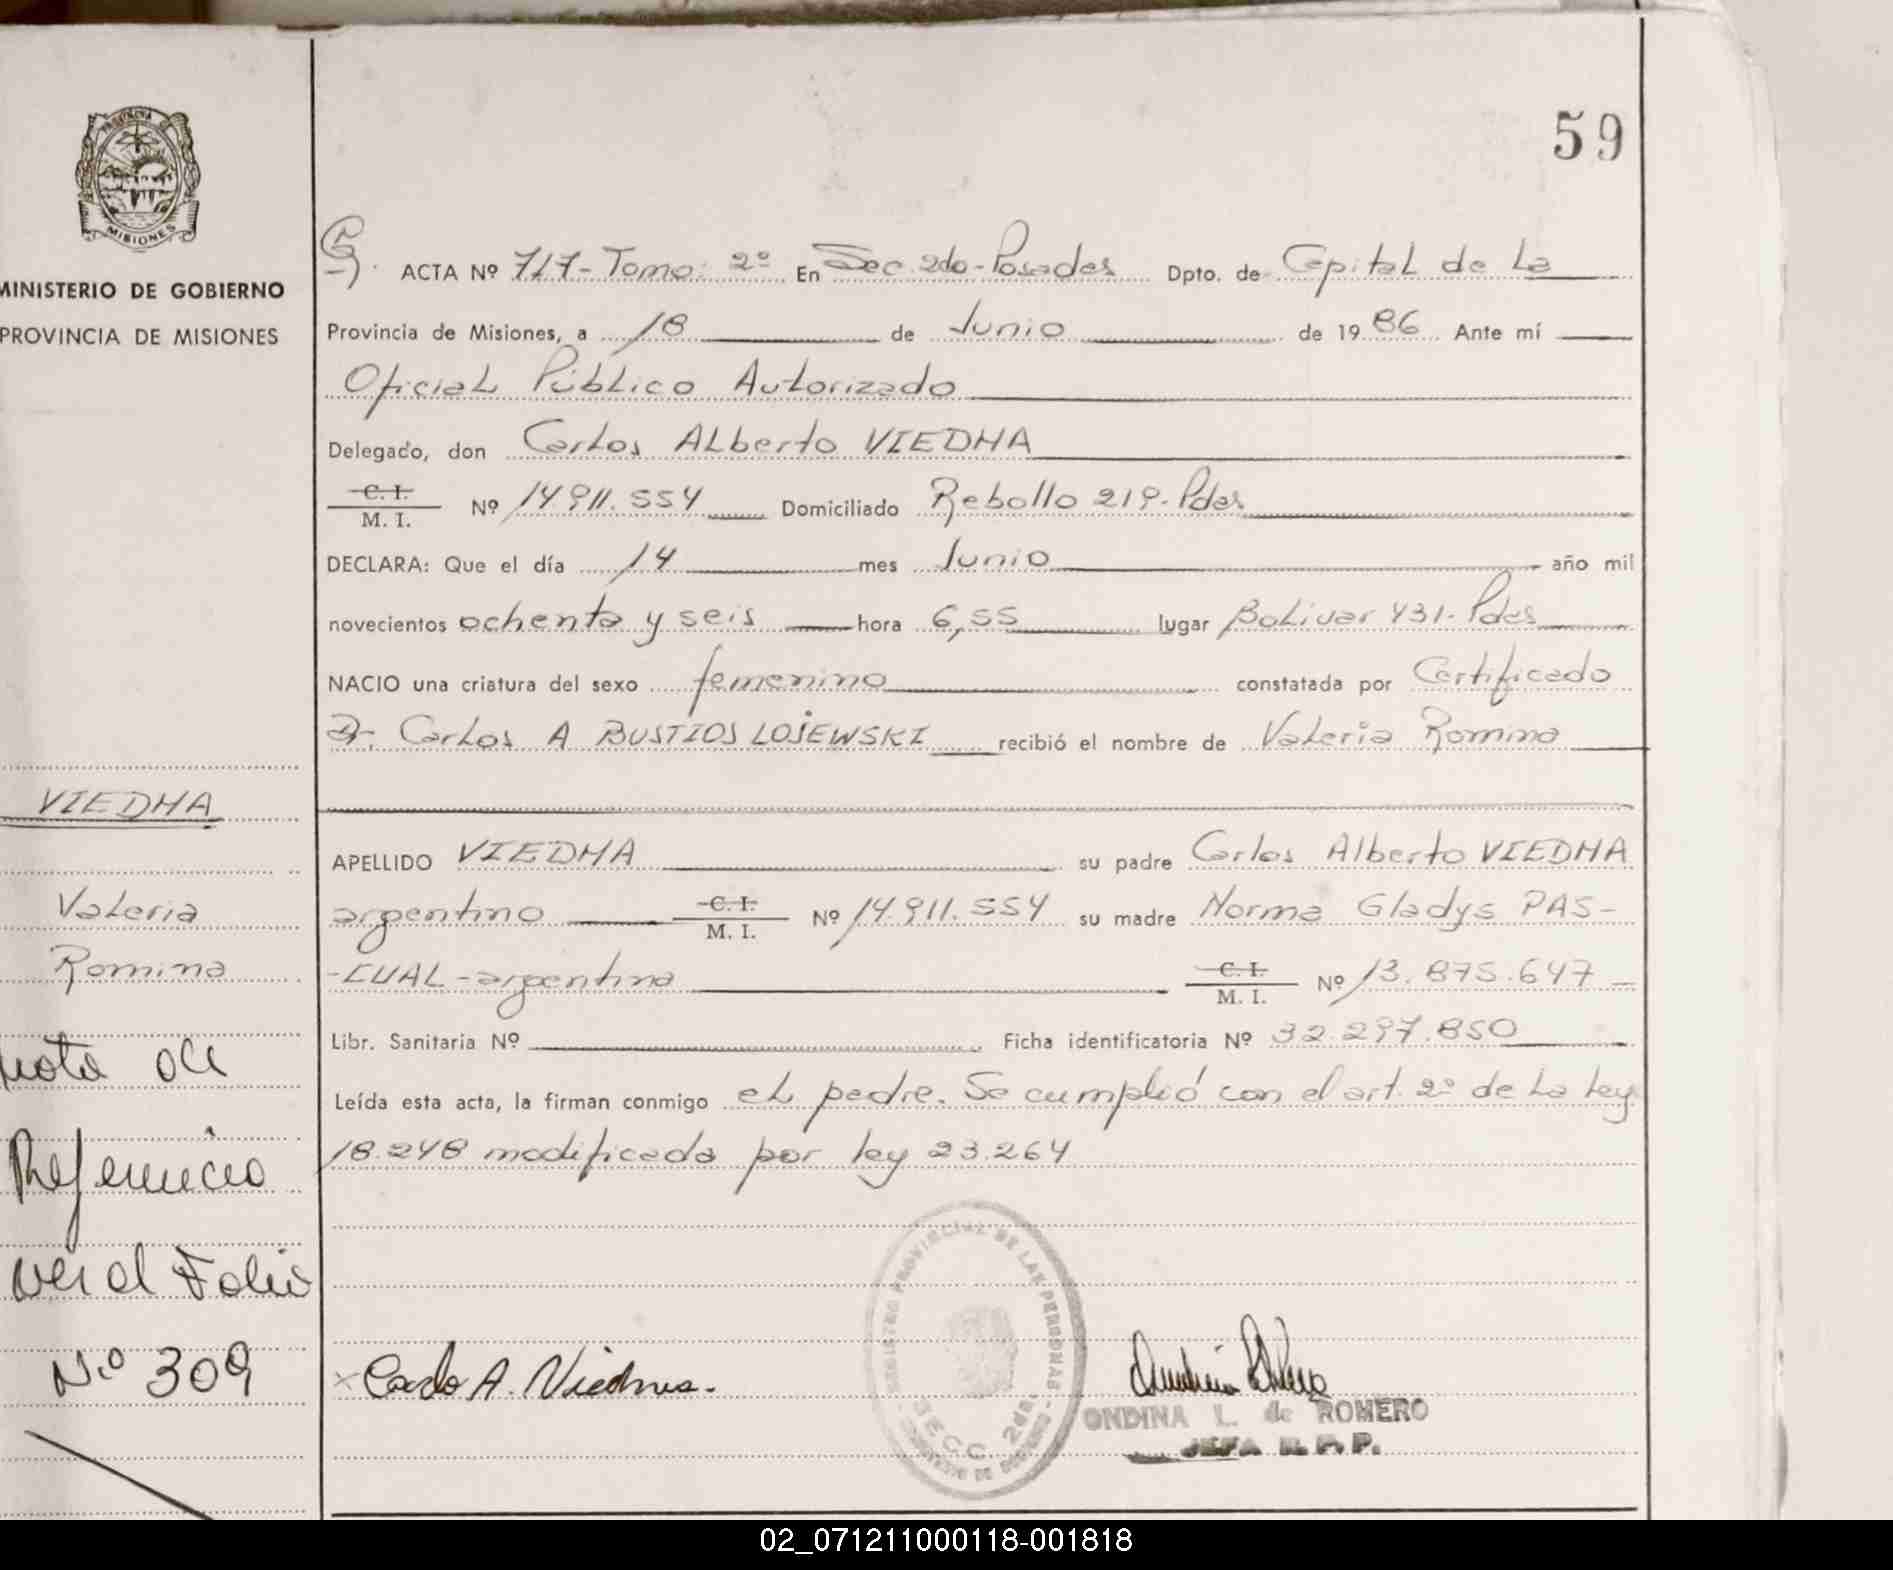 59
PROVINCIA DE
MISIONES
MINISTERIO DE GOBIERNO
PROVINCIA DE MISIONES
ACTA Nº 717- Tomo: 2º En Sec. 2do-Posadas Dpto. de Capital de La
Provincia de Misiones, a 18 de Junio de 1986 Ante mí
Oficial Público Autorizado
Delegado, don Carlos Alberto VIEDMA
C. I.
M. I. Nº 14.911.554 Domiciliado Rebollo 219-Pdas
DECLARA: Que el día 14 mes Junio año mil
novecientos ochenta y seis hora 6,55 lugar Bolivar 431- Pdas
NACIO una criatura del sexo femenino constatada por Certificado
Dr. Carlos A BUSTIOS LOJEWSKI recibió el nombre de Valeria Romina
APELLIDO VIEDMA su padre Carlos Alberto VIEDMA
argentino C. I.
M. I. Nº 14.911.554 su madre Norma Gladys PAS-
-CUAL-argentina C. I.
M. I. Nº 13.875.647
Libr. Sanitaria Nº Ficha identificatoria Nº 32.297.850
Leída esta acta, la firman conmigo el padre. Se cumplió con el art. 2º de La Ley
18.248 modificada por ley 23.264
VIEDMA
Valeria
Romina
nota de
Referencia
ver el Folio
Nº 309
Carlos A. Viedma.
REGISTRO PROVINCIAL DE LAS PERSONAS
SECC. 2da.
MINISTERIO DE GOBIERNO
ONDINA L. de ROMERO
JEFA R. P. P.
02_071211000118-001818